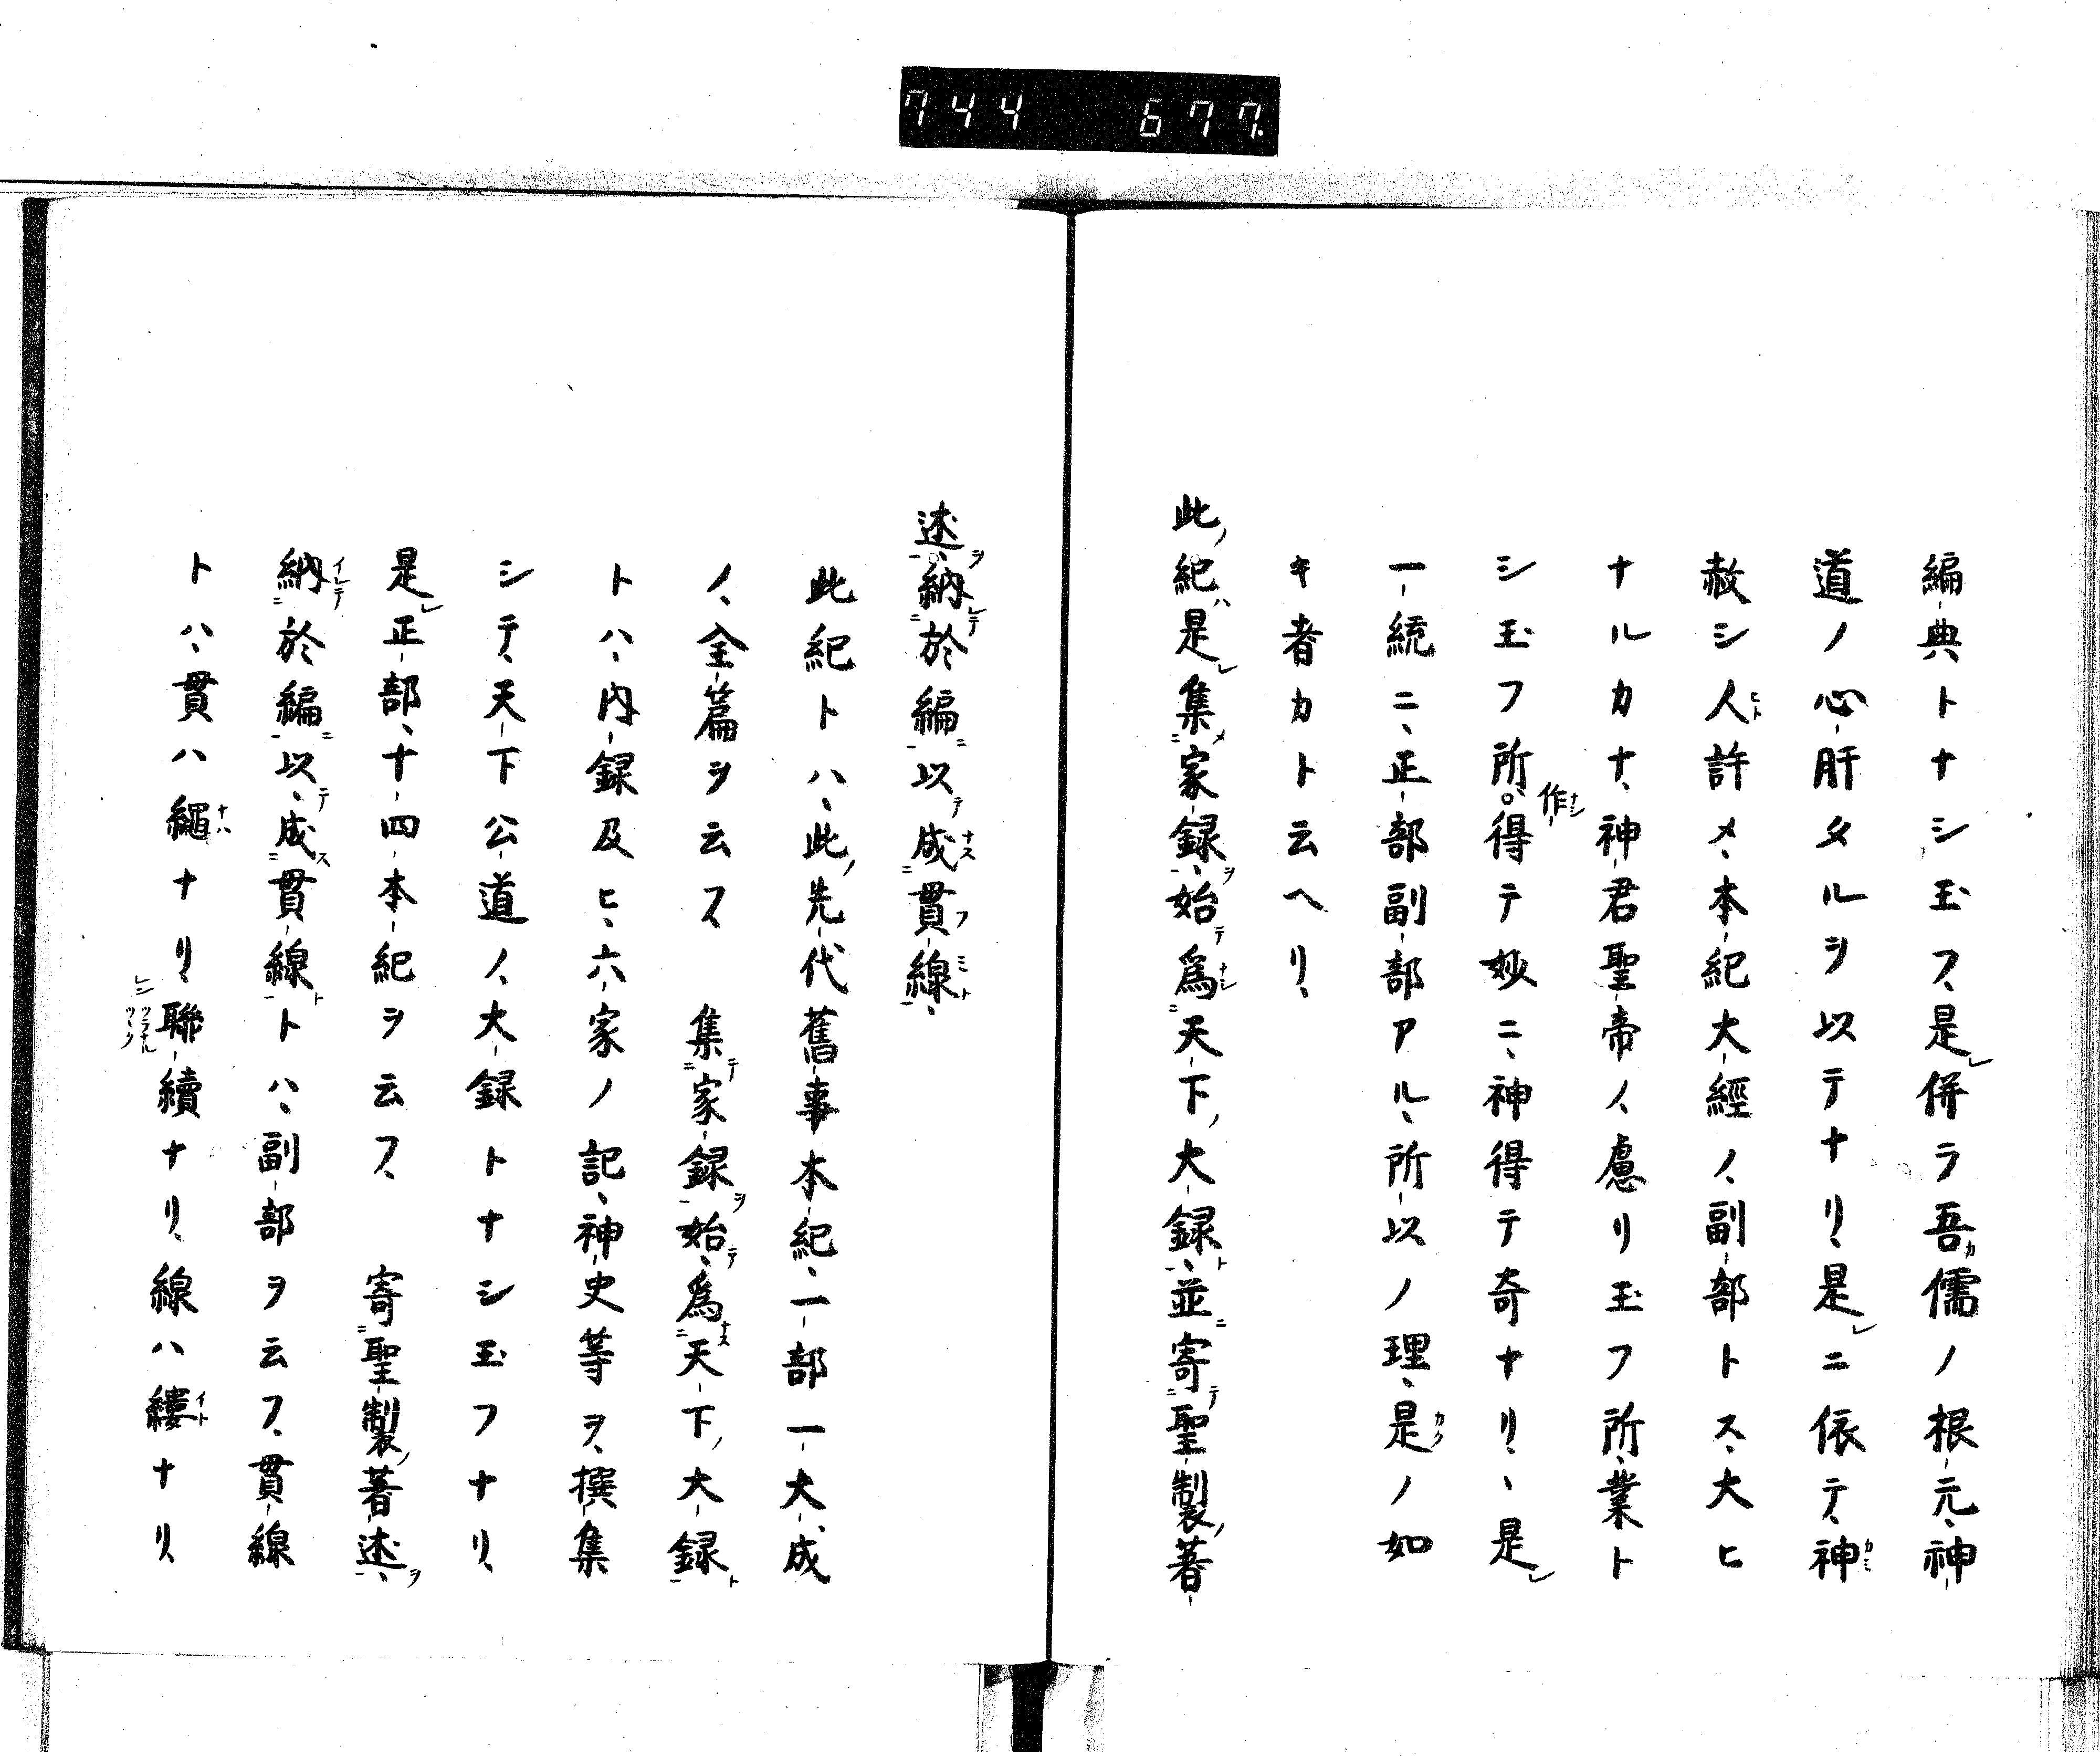 744 677.
編典トナシ玉フ、是レ併ラ吾カ儒ノ根元、神
道ノ心肝タルヲ以テナリ、是レニ依テ、神
赦シ人許メ、本紀大經ノ、副部トス、大ヒ
ナルカナ、神君聖帝ノ、慮リ玉フ所、業ト
シ玉フ所。作得テ妙ニ、神得テ奇ナリ、是レ
一統ニ、正部副部アル、所以ノ理、是ノ如
キ者カト云ヘリ、
此ノ紀ハ是レ集メ家録ヲ、始テ爲ナシ天下ノ大録ト、並ニ寄テ聖製ノ著
述ヲ、納レテ於編ニ以テ成ナス貫線ト、
此紀トハ、此ノ先代舊事本紀、一部一大成
ノ、全篇ヲ云フ 集テ家録ヲ始テ、爲ナス天下ノ大録ト
トハ、内録及ヒ、六家ノ記、神史等ヲ、撰集
シテ、天下公道ノ、大録トナシ玉フナリ、
是レ正部、十四本紀ヲ云フ、 寄聖製ノ著述ヲ、
納イレテ於編ニ以テ、成ス貫線トトハ、副部ヲ云フ、貫線
トハ、貫ハ繩ナリ、聯續ナリ、線ハ縷ナリ、